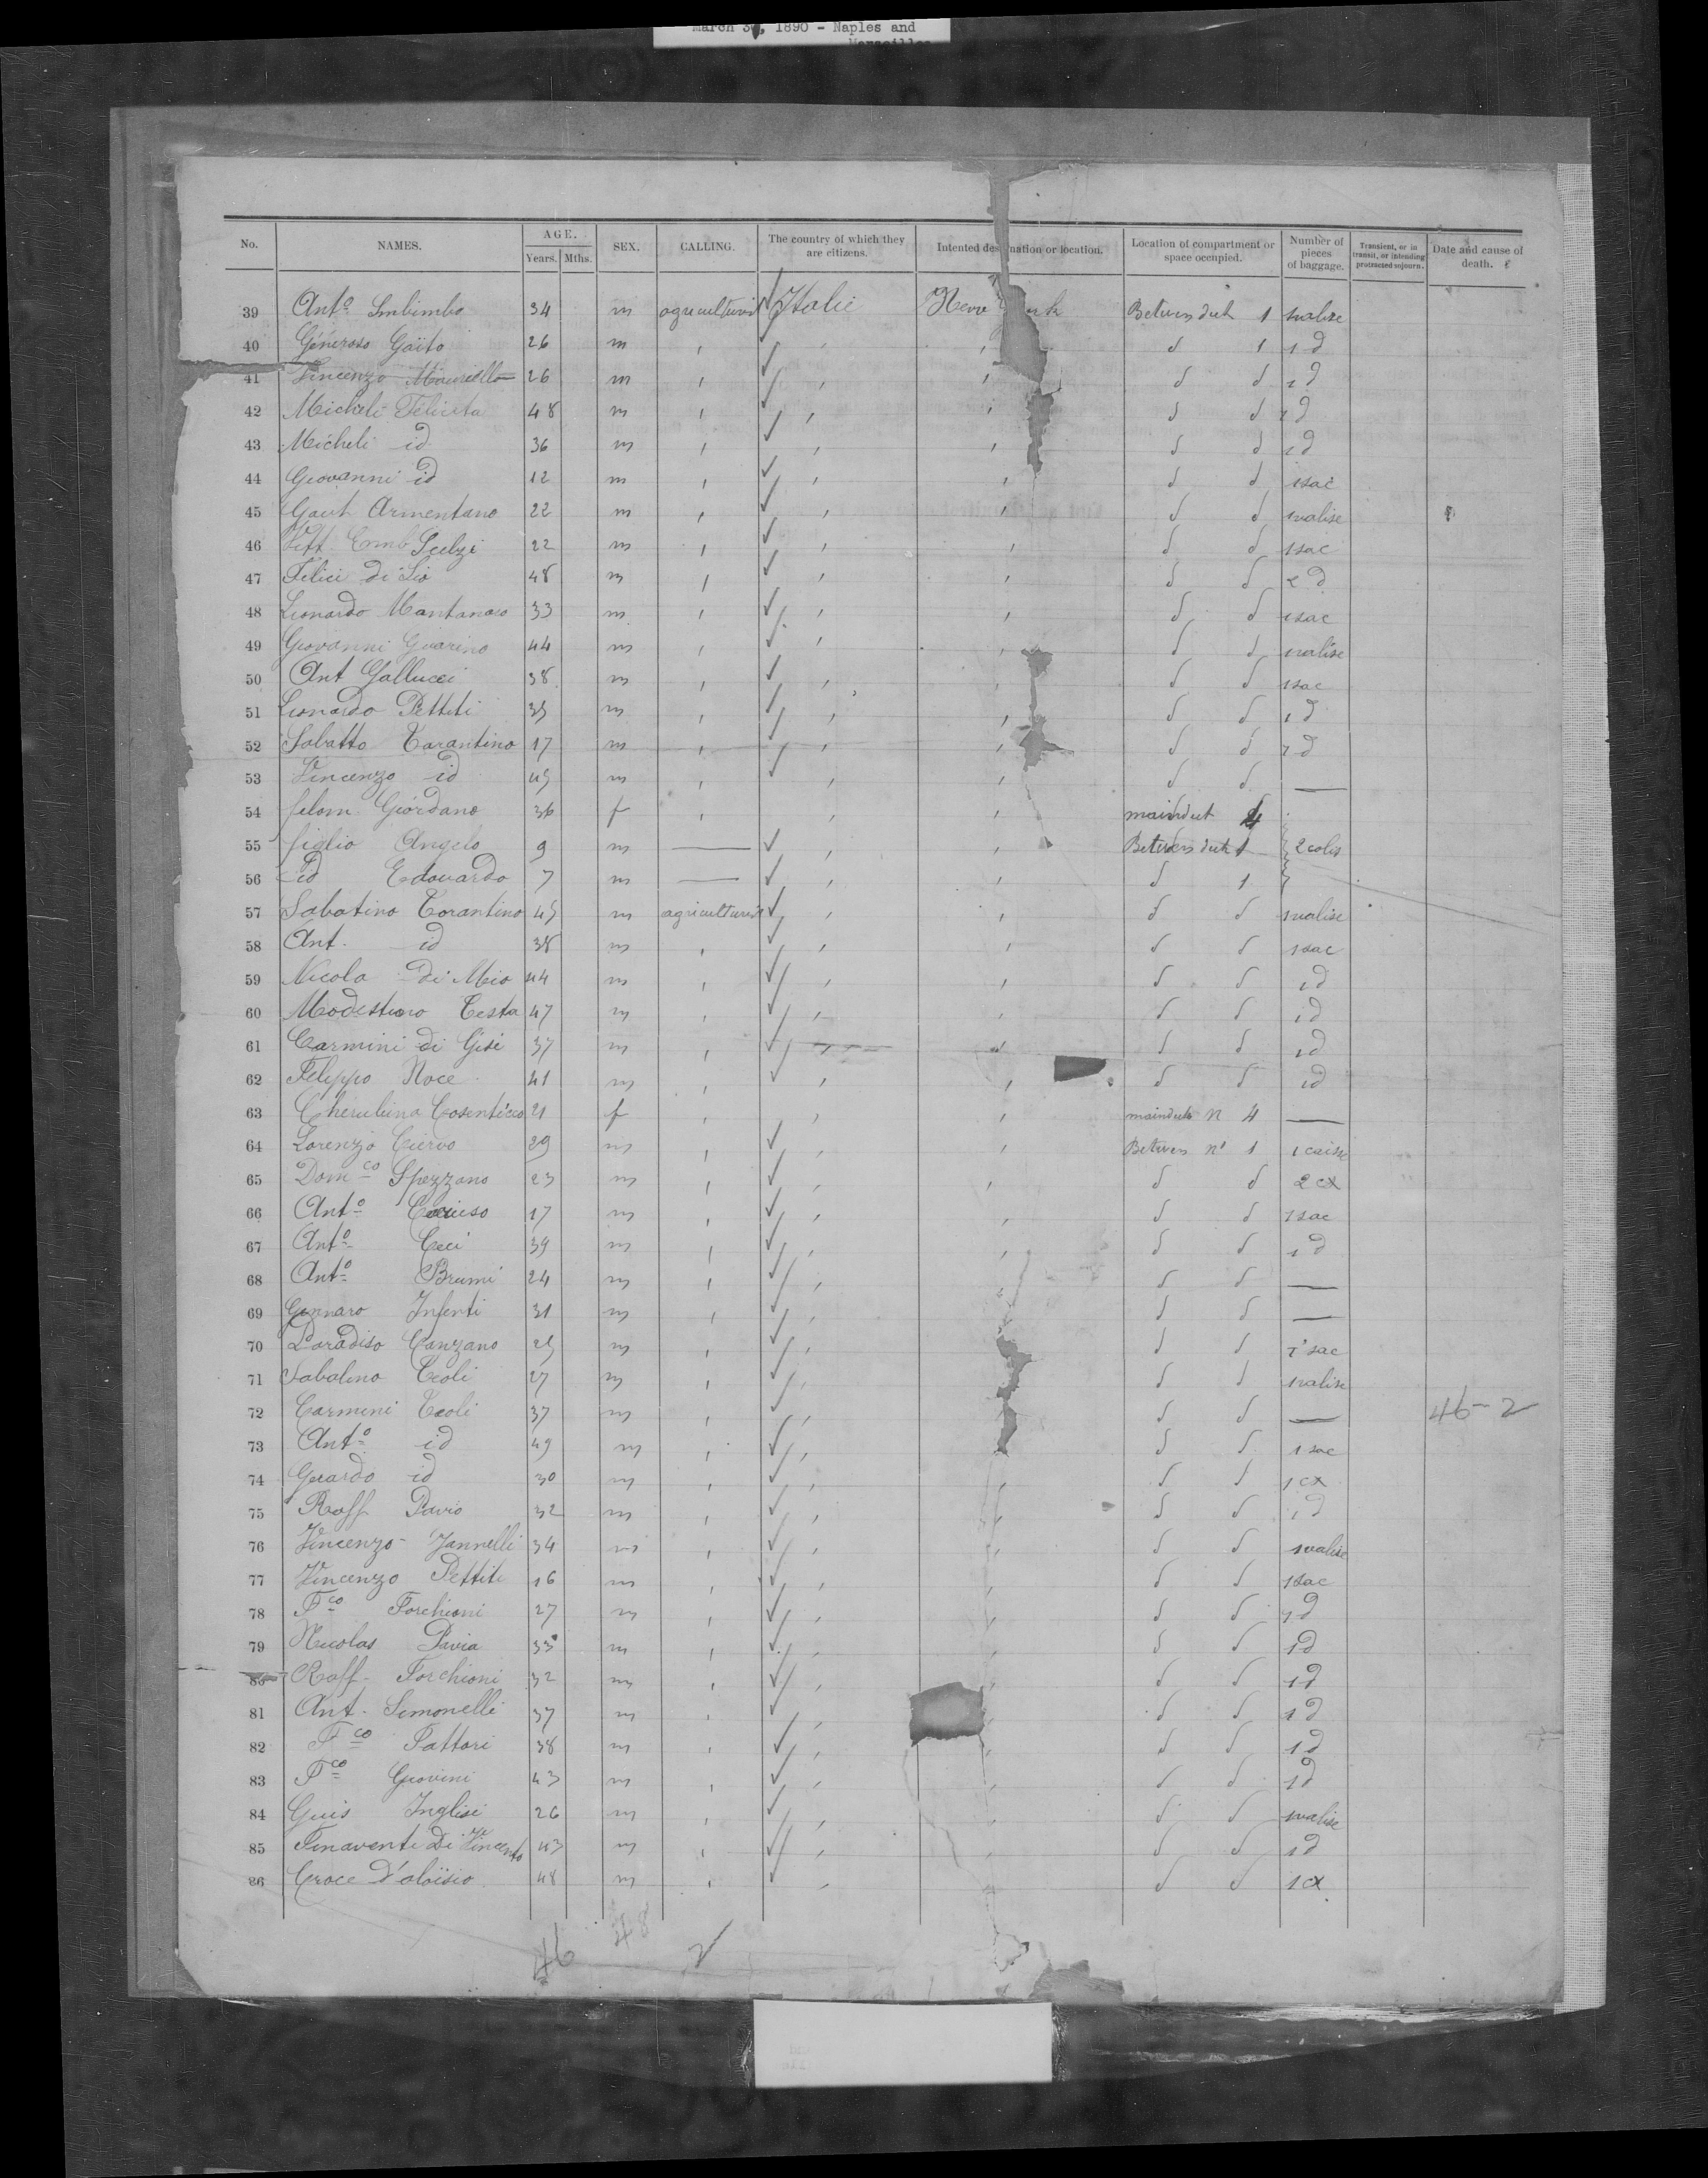 March 3, 1890 - Naples and
Marseilles
No. NAMES. AGE. Years. Mths. SEX. CALLING. The country of which they are citizens. Intented destination or location. Location of compartment or space occupied. Number of pieces of baggage. Transient, or in transit, or intending protracted sojourn. Date and cause of death.
39 Anto Imbimbo 34 m agriculturist Italie New York Betwen deck 1 1 valise
40 Géneroso Gaïto 26 m " " " d 1 1 d
41 Vincenzo Mauriello 26 m " " " d d 1 d
42 Micheli Feliceta 48 m " " " d d 1 d
43 Micheli id 36 m " " " d d 1 d
44 Giovanni id 12 m " " " d d 1 sac
45 Armentano 22 m " " " d d 1 valise
46 Vitt Emb Scelzi 22 m " " " d d 1 sac
47 Felici di Lio 48 m " " " d d 2 d
48 Lionardo Mantanaro 33 m " " " d d 1 sac
49 Giovanni Guarino 44 m " " " d d 1 valise
50 Ant Gallucci 38 m " " " d d 1 sac
51 Lionardo Pettiti 35 m " " " d d 1 d
52 Sabatto Tarantino 17 m " " " d d 1 d
53 Vincenzo id 45 m " " " d d —
54 filom Giordano 36 f " " " maindeck 4
55 figlio Angelo 9 m — " " Betwen deck 1 2 colis
56 id Edouardo 7 m — " " d 1
57 Sabatino Torantino 45 m agriculturist " " d d 1 valise
58 Ant. id 38 m " " " d d 1 sac
59 Nicola di Mio 44 m " " " d d 1 d
60 Modestino Testa 47 m " " " d d 1 d
61 Carmini di Gisi 37 m " " " d d 1 d
62 Filippo Noce 41 m " " " d d 1 d
63 Cherubina Cosenticco 21 f " " " maindeck n 4 —
64 Lorenzo Ciervo 29 m " " " Betwen n° 1 1 caisse
65 Domco Spezzano 23 m " " " d d 2 cx
66 Anto 17 m " " " d d 1 sac
67 Anto Ceci 39 m " " " d d 1 d
68 Anto Brumi 24 m " " " d d —
69 Gennaro Infenti 31 m " " " d d —
70 Paradiso Canzano 25 m " " " d d 1 sac
71 Sabalino Teoli 27 m " " " d d 1 valise
72 Carmini Teoli 37 m " " " d d — 46-2
73 Anto id 49 m " " " d d 1 sac
74 Gerardo id 30 m " " " d d 1 cx
75 Raff Pavio 32 m " " " d d 1 d
76 Vincenzo Jannelli 34 m " " " d d 1 valise
77 Vincenzo Pettiti 16 m " " " d d 1 sac
78 Fco Forchioni 27 m " " " d d 1 d
79 Nicolas Pavia 33 m " " " d d 1 d
80 Raff. Forchioni 32 m " " " d d 1 d
81 Ant. Simonelli 37 m " " " d d 1 d
82 Fco Fattori 38 m " " " d d 1 d
83 Fco Giovini 43 m " " " d d 1 d
84 Guis Inglisi 26 m " " " d d 1 valise
85 Finaventi Di Vincento 43 m " " " d d 1 d
86 Croce d'aloïsio 48 m " " " d d 1 cx
46 48 2